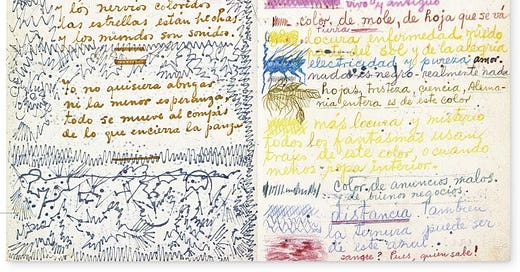 y los nervios coloridos
las estrellas están hechas
y los mundos son sonido.
Yo no quisiera abrigar
ni la menor esperanza,
todo se mueve al compás
de lo que encierra la panza
vivo y antiguo
color de mole, de hoja que se va
tierra
locura enfermedad miedo
del sol y de la alegría
electricidad y pureza amor.
nada es negro - realmente nada
hojas, tristeza, ciencia, Alema-
nia entera es de este color
más locura y misterio
todos los fantasmas usan
trajes de este color, o cuando
menos ropa interior.
Color de anuncios malos
y de buenos negocios.
distancia También
la ternura puede ser
de este azul
sangre? Pues, quien sabe!